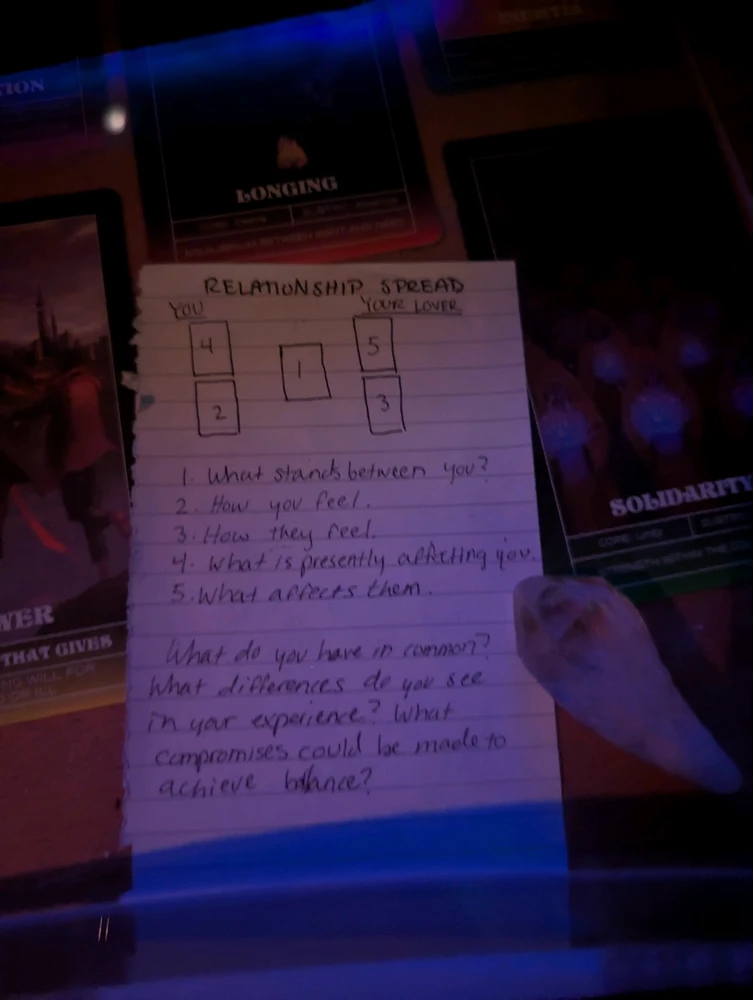 INERTIA
TION
LONGING
RELATIONSHIP SPREAD
YOU
YOUR LOVER
4
5
1
2
3
1. What stands between you?
2. How you feel.
3. How they feel.
4. What is presently affecting you.
5. What affects them.
What do you have in common?
What differences do you see
in your experience? What
compromises could be made to
achieve balance?
SOLIDARITY
STRENGTH WITHIN THE
WER
THAT GIVES
NG WILL FOR